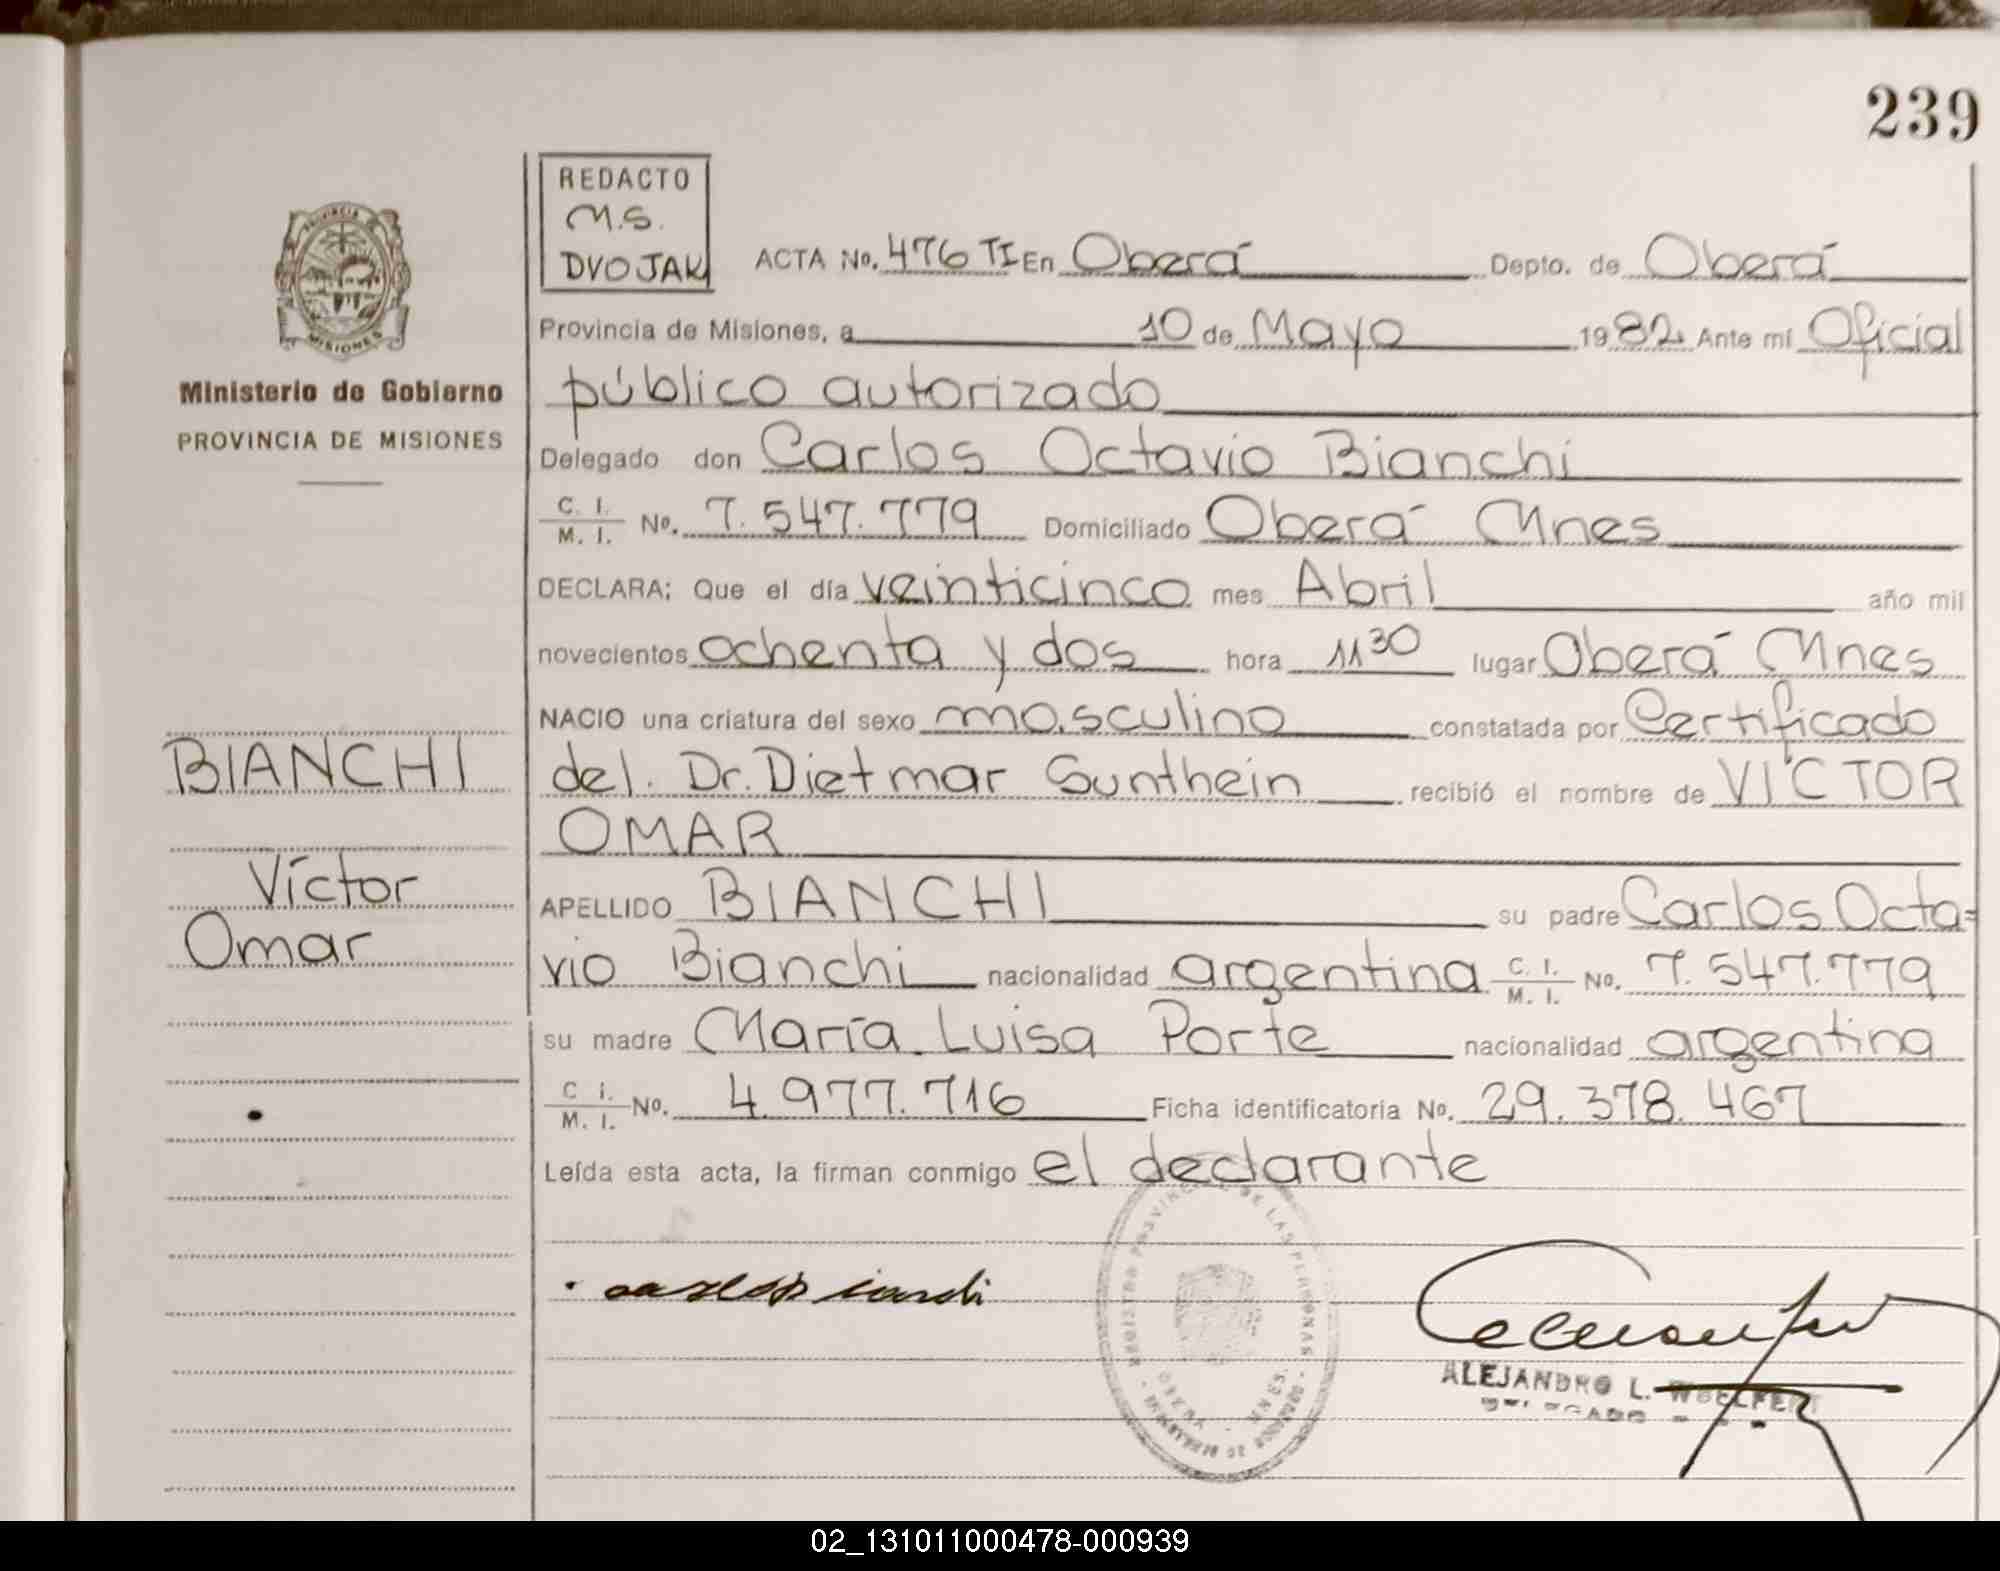 239
REDACTO
M.S.
DVOJAK
ACTA No. 476 TI En Oberá Depto. de Oberá
Provincia de Misiones, a 10 de Mayo 1982 Ante mí Oficial
público autorizado
Delegado don Carlos Octavio Bianchi
C. I. / M. I. No. 7.547.779 Domiciliado Oberá Mnes
DECLARA; Que el día veinticinco mes Abril año mil
novecientos ochenta y dos hora 11 30 lugar Oberá Mnes
NACIO una criatura del sexo masculino constatada por Certificado
del. Dr. Dietmar Sunthein recibió el nombre de VÍCTOR
OMAR
APELLIDO BIANCHI su padre Carlos Octa=
vio Bianchi nacionalidad argentina C. I. / M. I. No. 7.547.779
su madre María Luisa Porte nacionalidad argentina
C I. / M. I. No. 4.977.716 Ficha identificatoria No. 29.378.467
Leída esta acta, la firman conmigo el declarante
PROVINCIA
MISIONES
Ministerio de Gobierno
PROVINCIA DE MISIONES
BIANCHI
Víctor
Omar
REGISTRO PROVINCIAL DE LAS PERSONAS
OBERA MNES.
ALEJANDRO L. WOELFERT
DELEGADO
02_131011000478-000939